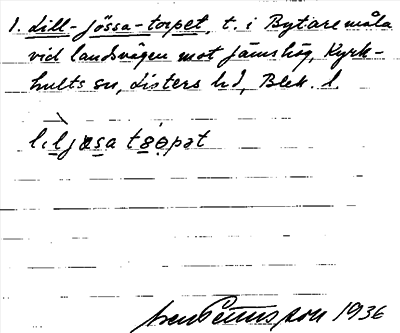 1. Lill-jössa-torpet, t. i Bytaremåla
vid landsvägen mot Jämshög, Kyrk-
hults sn, Listers hd, Blek. l.
1936